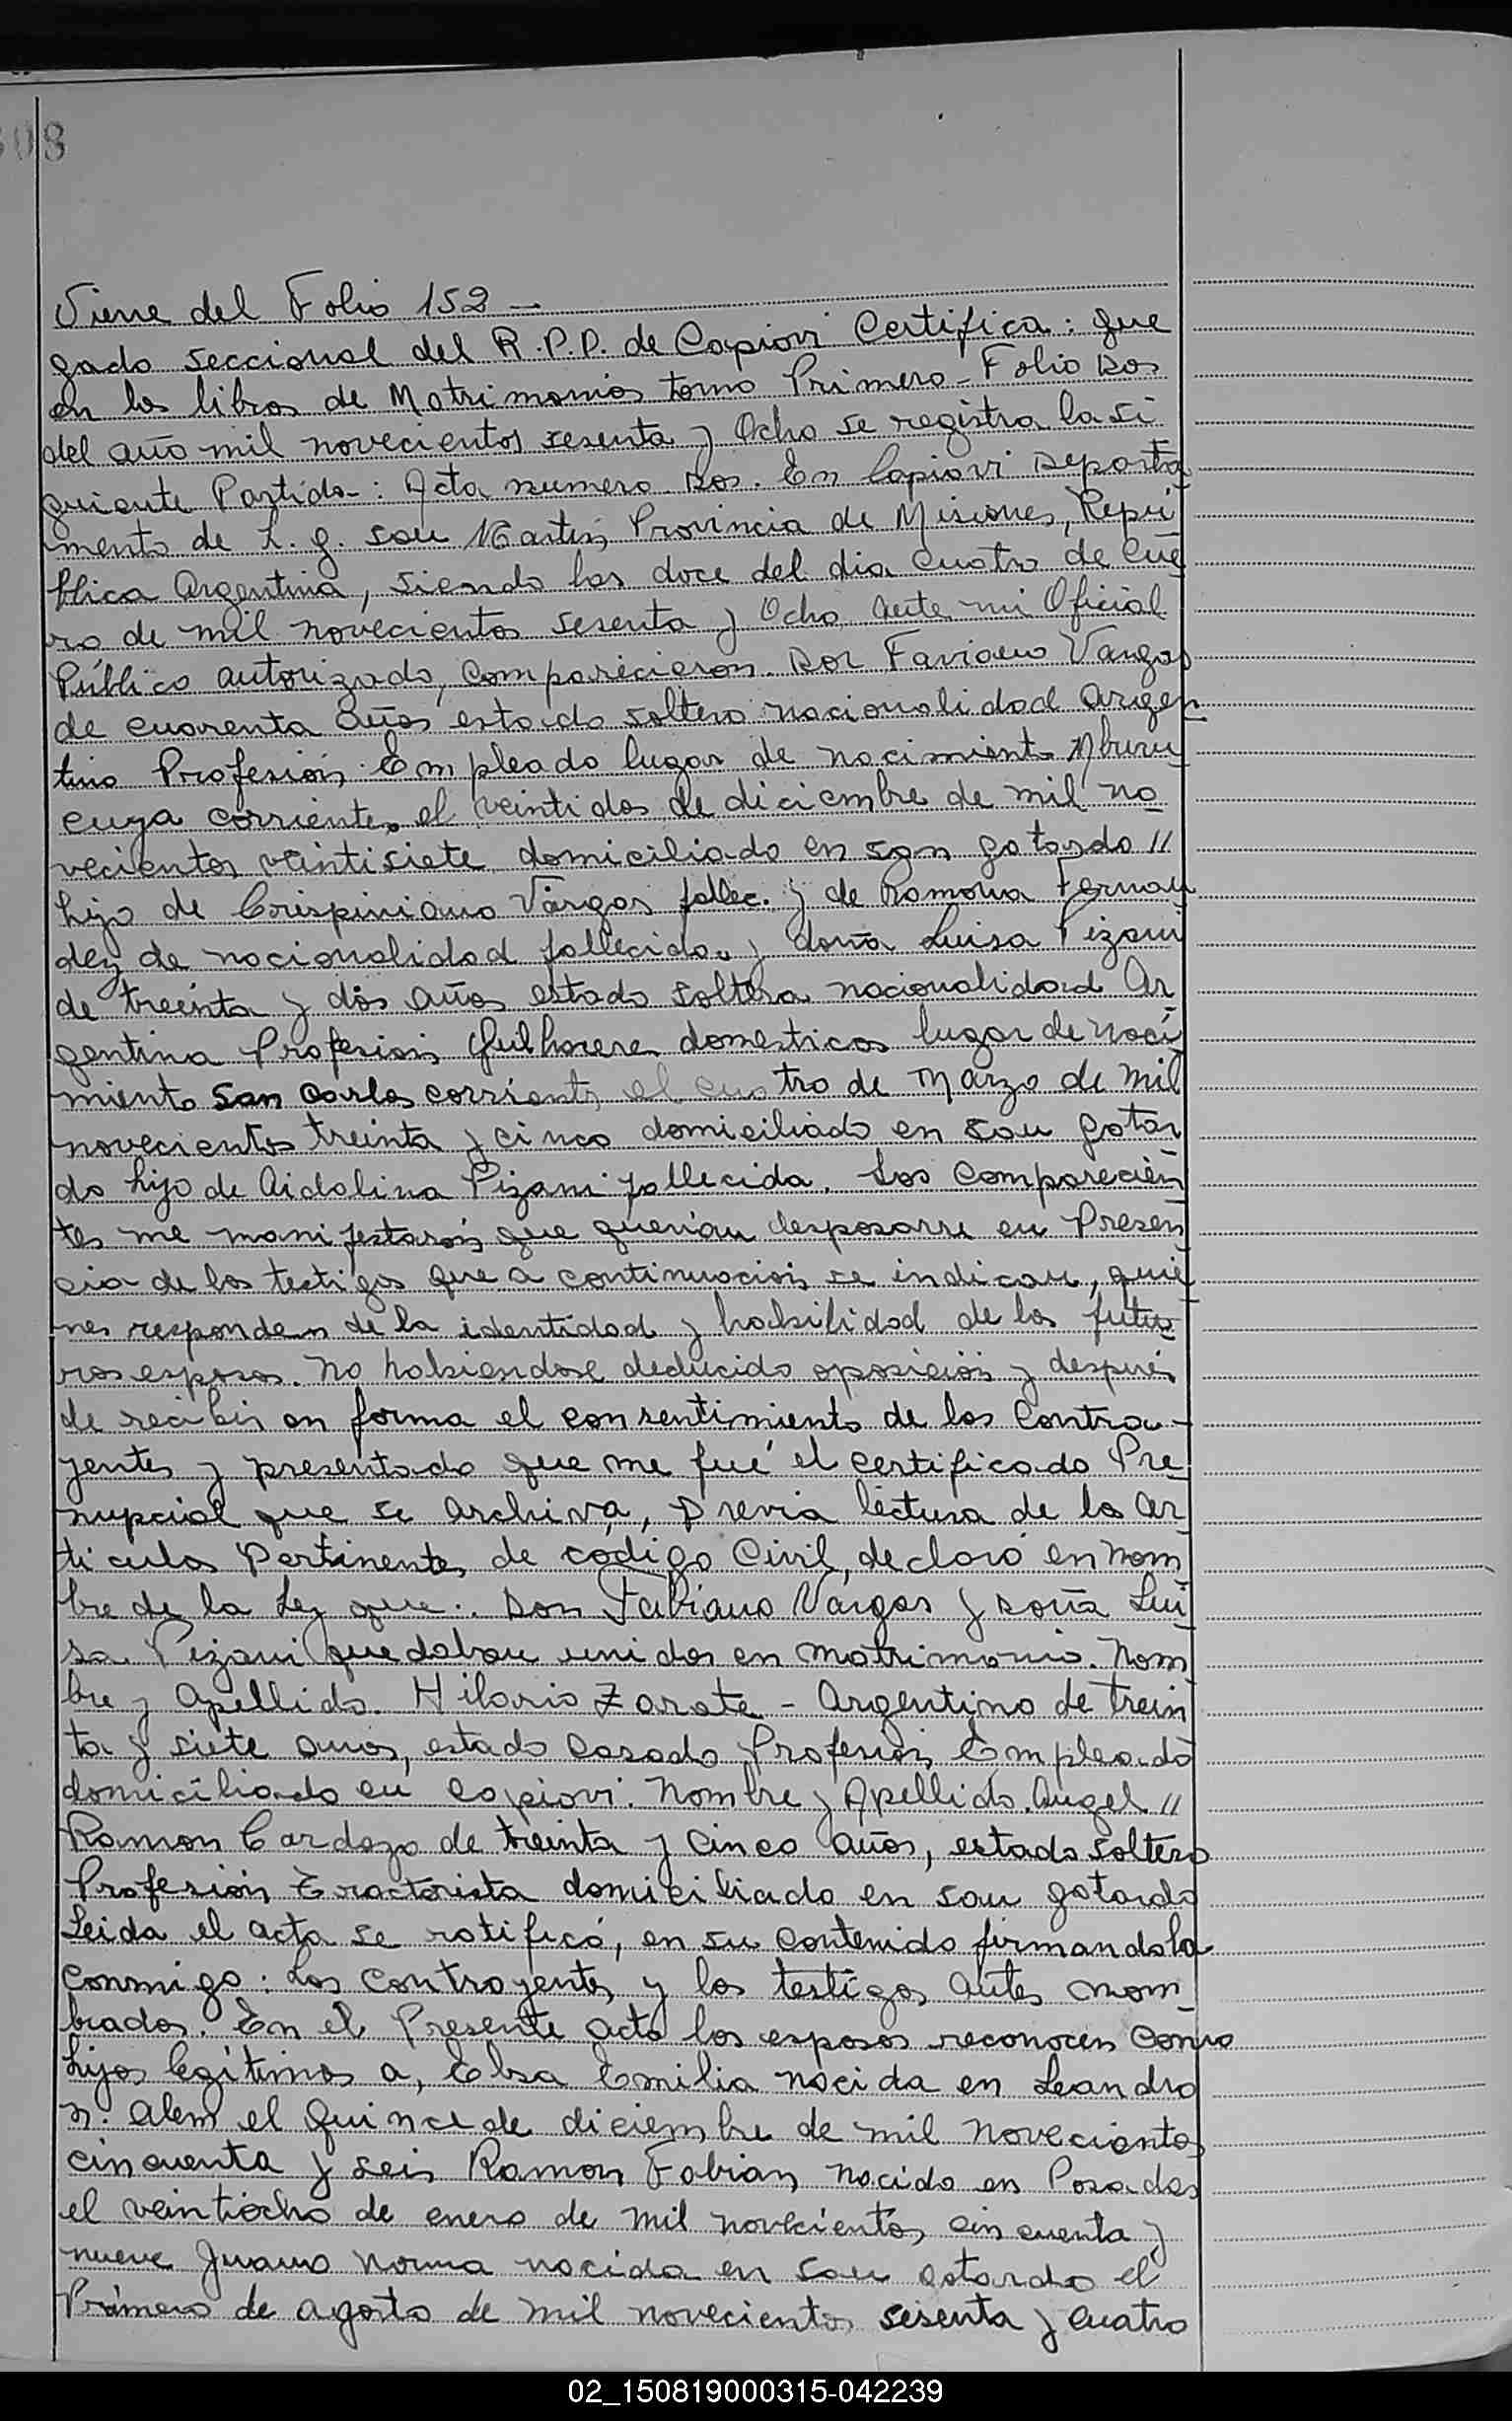 308
Viene del Folio 152 —
gado seccional del R.P.P. de Capiovi Certifica: que
en los libros de Matrimonios tomo Primero - Folio Dos
del año mil novecientos sesenta y Ocho se registra la si
guiente Partida -: Acta numero Dos. En Capiovi Departa
mento de L. g. san Martin Provincia de Misiones, Repú
blica Argentina, siendo las doce del dia cuatro de Ene
ro de mil novecientos sesenta y Ocho ante mi Oficial
Público autorizado, comparecieron. Don Faviano Vargas
de cuarenta años estado soltero nacionalidad argen
tino Profesión Empleado lugar de nacimiento Mburu
cuya corrientes el veintidos de diciembre de mil no
vecientos veintisiete domiciliado en san gotardo //
hijo de Crispiniano Vargas fallec. y de Ramona Fernan
dez de nacionalidad fallecida y doña Luisa Pizani
de treinta y dos años estado soltera nacionalidad Ar
gentina Profesion Quehaceres domesticos lugar de naci
miento San Carlos corrientes el cuatro de Marzo de mil
novecientos treinta y cinco domiciliado en san gotar
do hijo de Aidolina Pizani fallecida. Los Comparecien
tes me manifestarón que querian desposarse en Presen
cia de los testigos que a continuación se indican, quie
nes responden de la identidad y habilidad de los futu
ros esposos. No habiendose deducido oposición y después
de recibir en forma el consentimiento de los Contra-
yentes y presentado que me fué el certificado Pre
nupcial que se archiva, previa lectura de los ar
ticulos Pertinentes de codigo Civil, declaró en nom
bre de la Ley que:. Don Fabiano Vargas y Doña Lui
sa Pizani quedaban unidos en matrimonio. Nom
bre y Apellido. Hilario Zarate - Argentino de trein
ta y siete años, estado Casado Profesion Empleado
domiciliado en Capiovi. Nombre y Apellido. Angel //
Ramon Cardozo de treinta y cinco años, estado soltero
Profesión Tractorista domiciliado en san gotardo
Leida el acta se ratificó, en su contenido firmandola
Conmigo: Los Contrayentes y los testigos antes nom_
brados. En el Presente acto los esposos reconocen Como
hijos legitimos a, Elsa Emilia nacida en Leandro
N. Alem el Quince de diciembre de mil novecientos
cincuenta y seis Ramon Fabian nacido en Posadas
el veintiocho de enero de mil novecientos cincuenta y
nueve Juana Norma nacida en san gotardo el
Primero de agosto de mil novecientos sesenta y cuatro
02_150819000315-042239